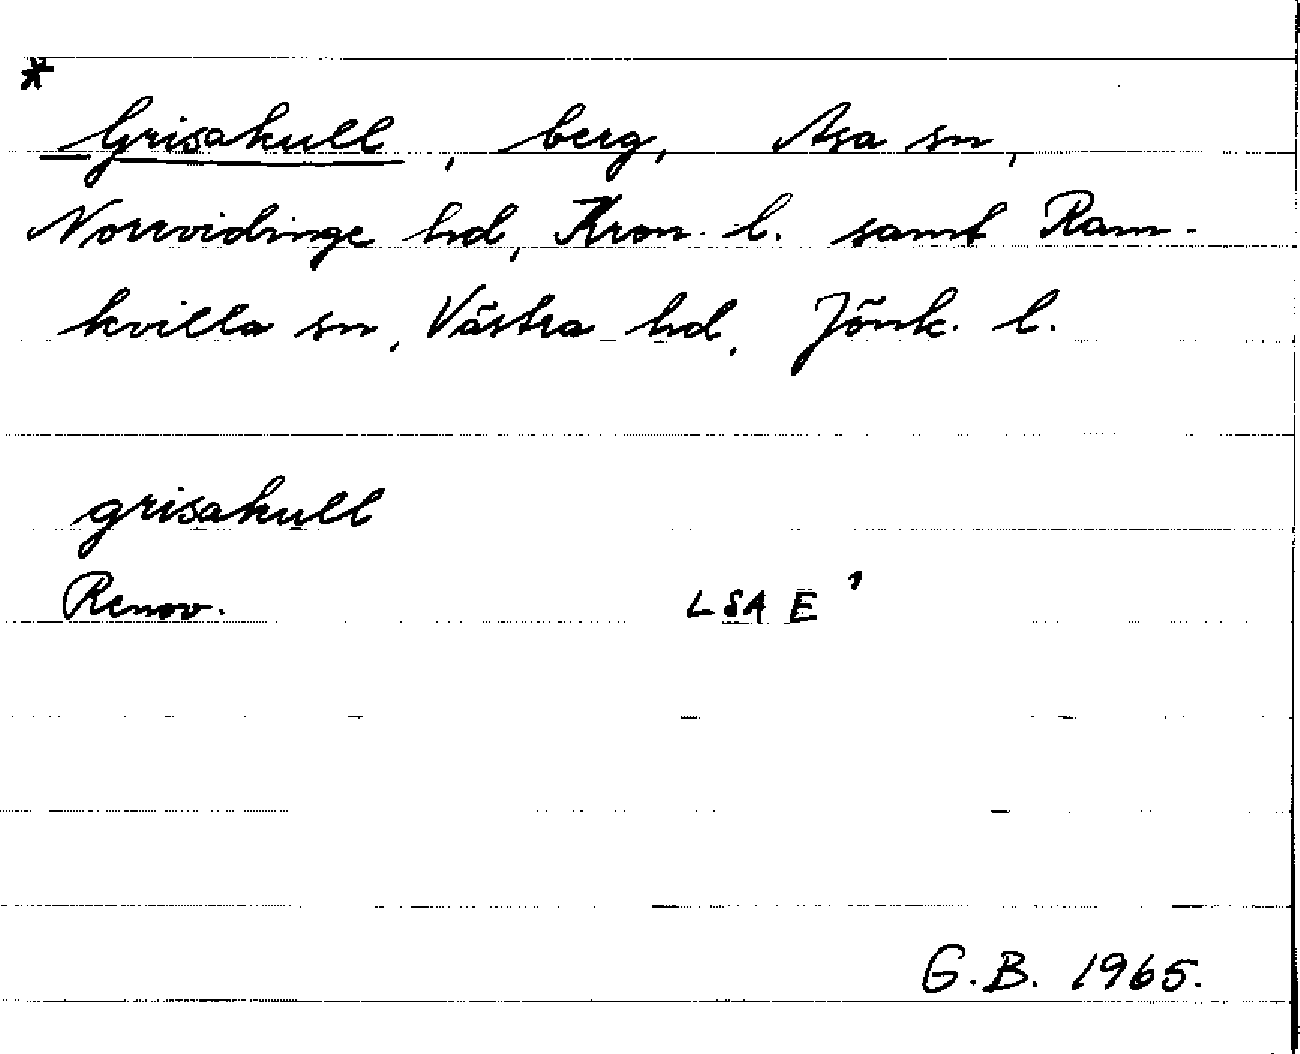 *
Grisakull, berg, Asa sn,
Norrvidinge hd, Kron. l. samt Ram-
kvilla sn, Västra hd, Jönk. l.
grisakull
Renov. LSA E'
G.B. 1965.